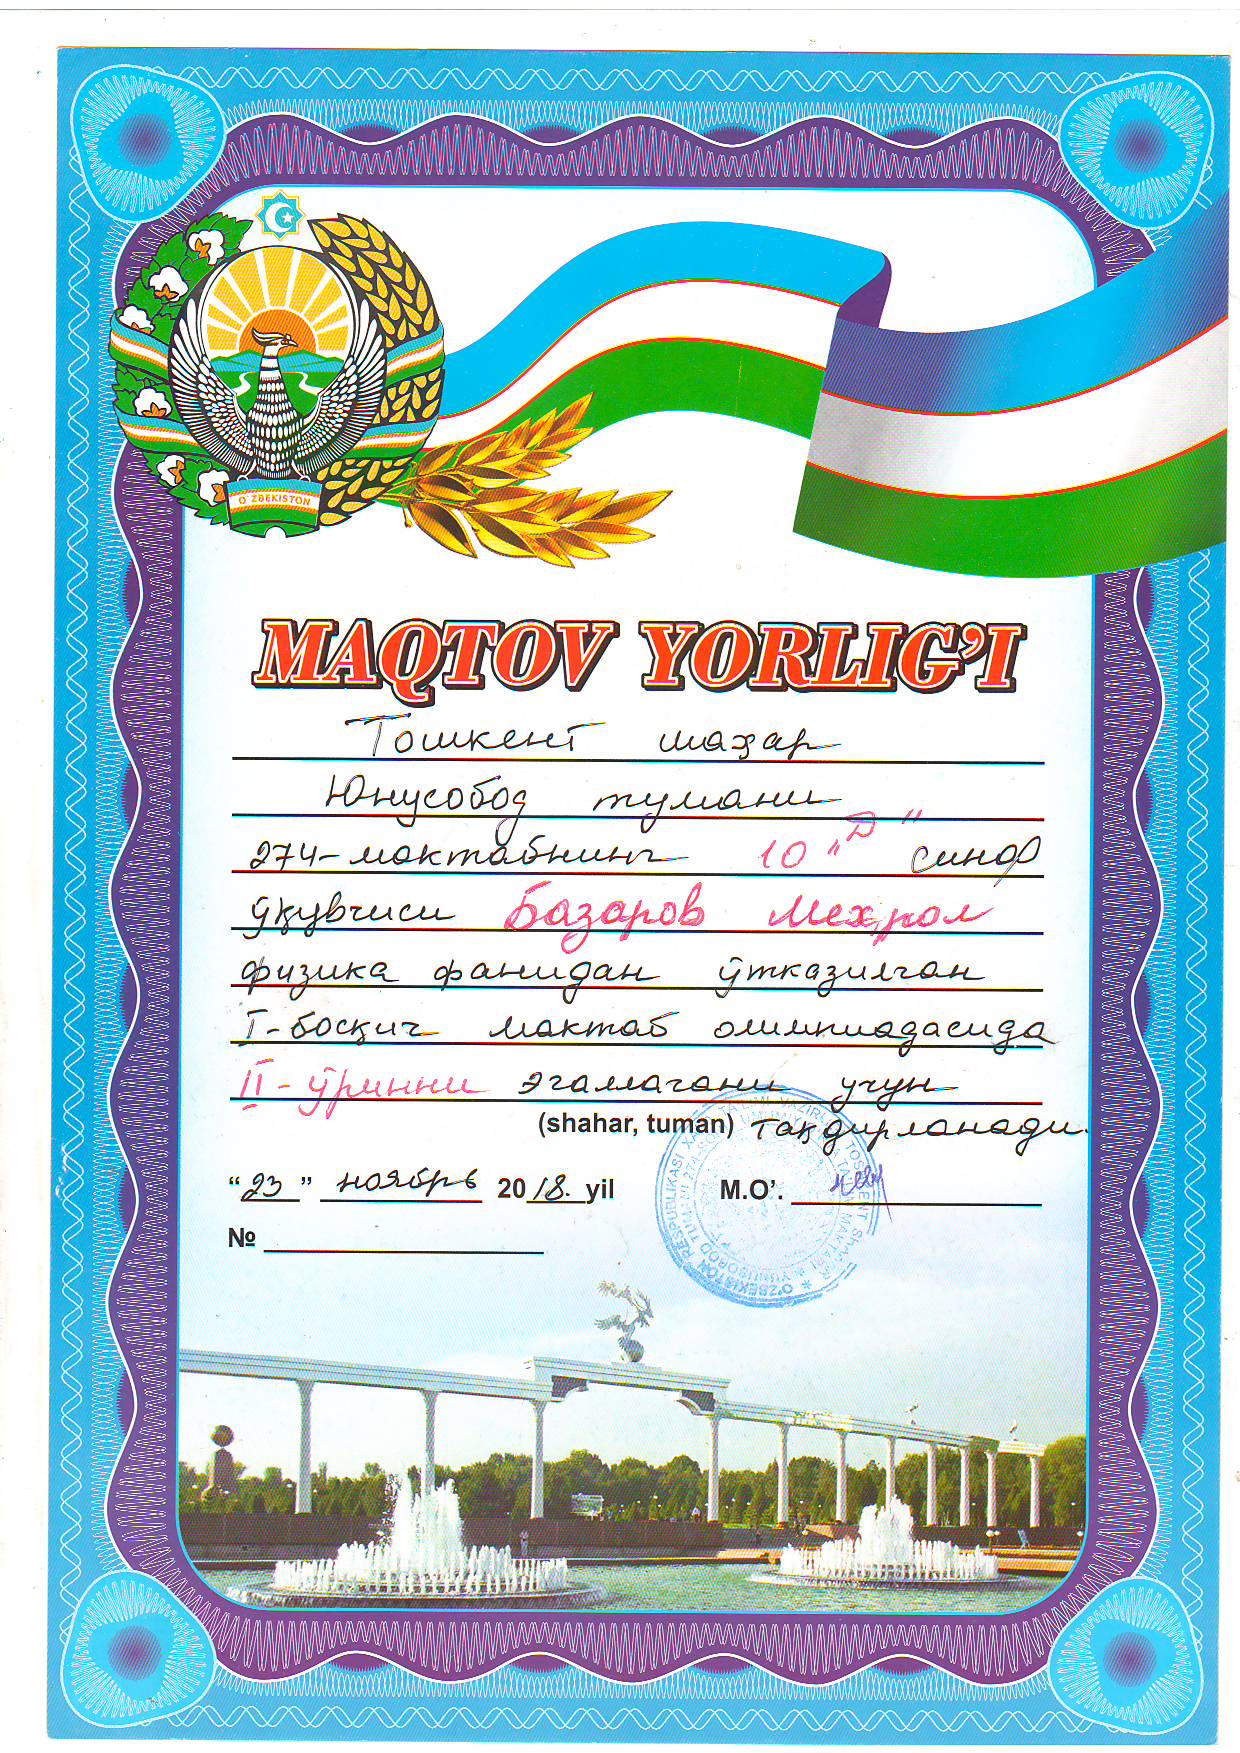 O'ZBEKISTON
MAQTOV YORLIG'I
Тошкент шаҳар
Юнусобод тумани
274-мактабнинг 10 „Д" синф
ўқувчиси Базаров Меҳрол
физика фанидан ўтказилган
I-босқич мактаб олимпиадасида
II-ўринни эгаллагани учун
(shahar, tuman) тақдирланади.
“23” ноябрь 2018. yil M.O’.
№